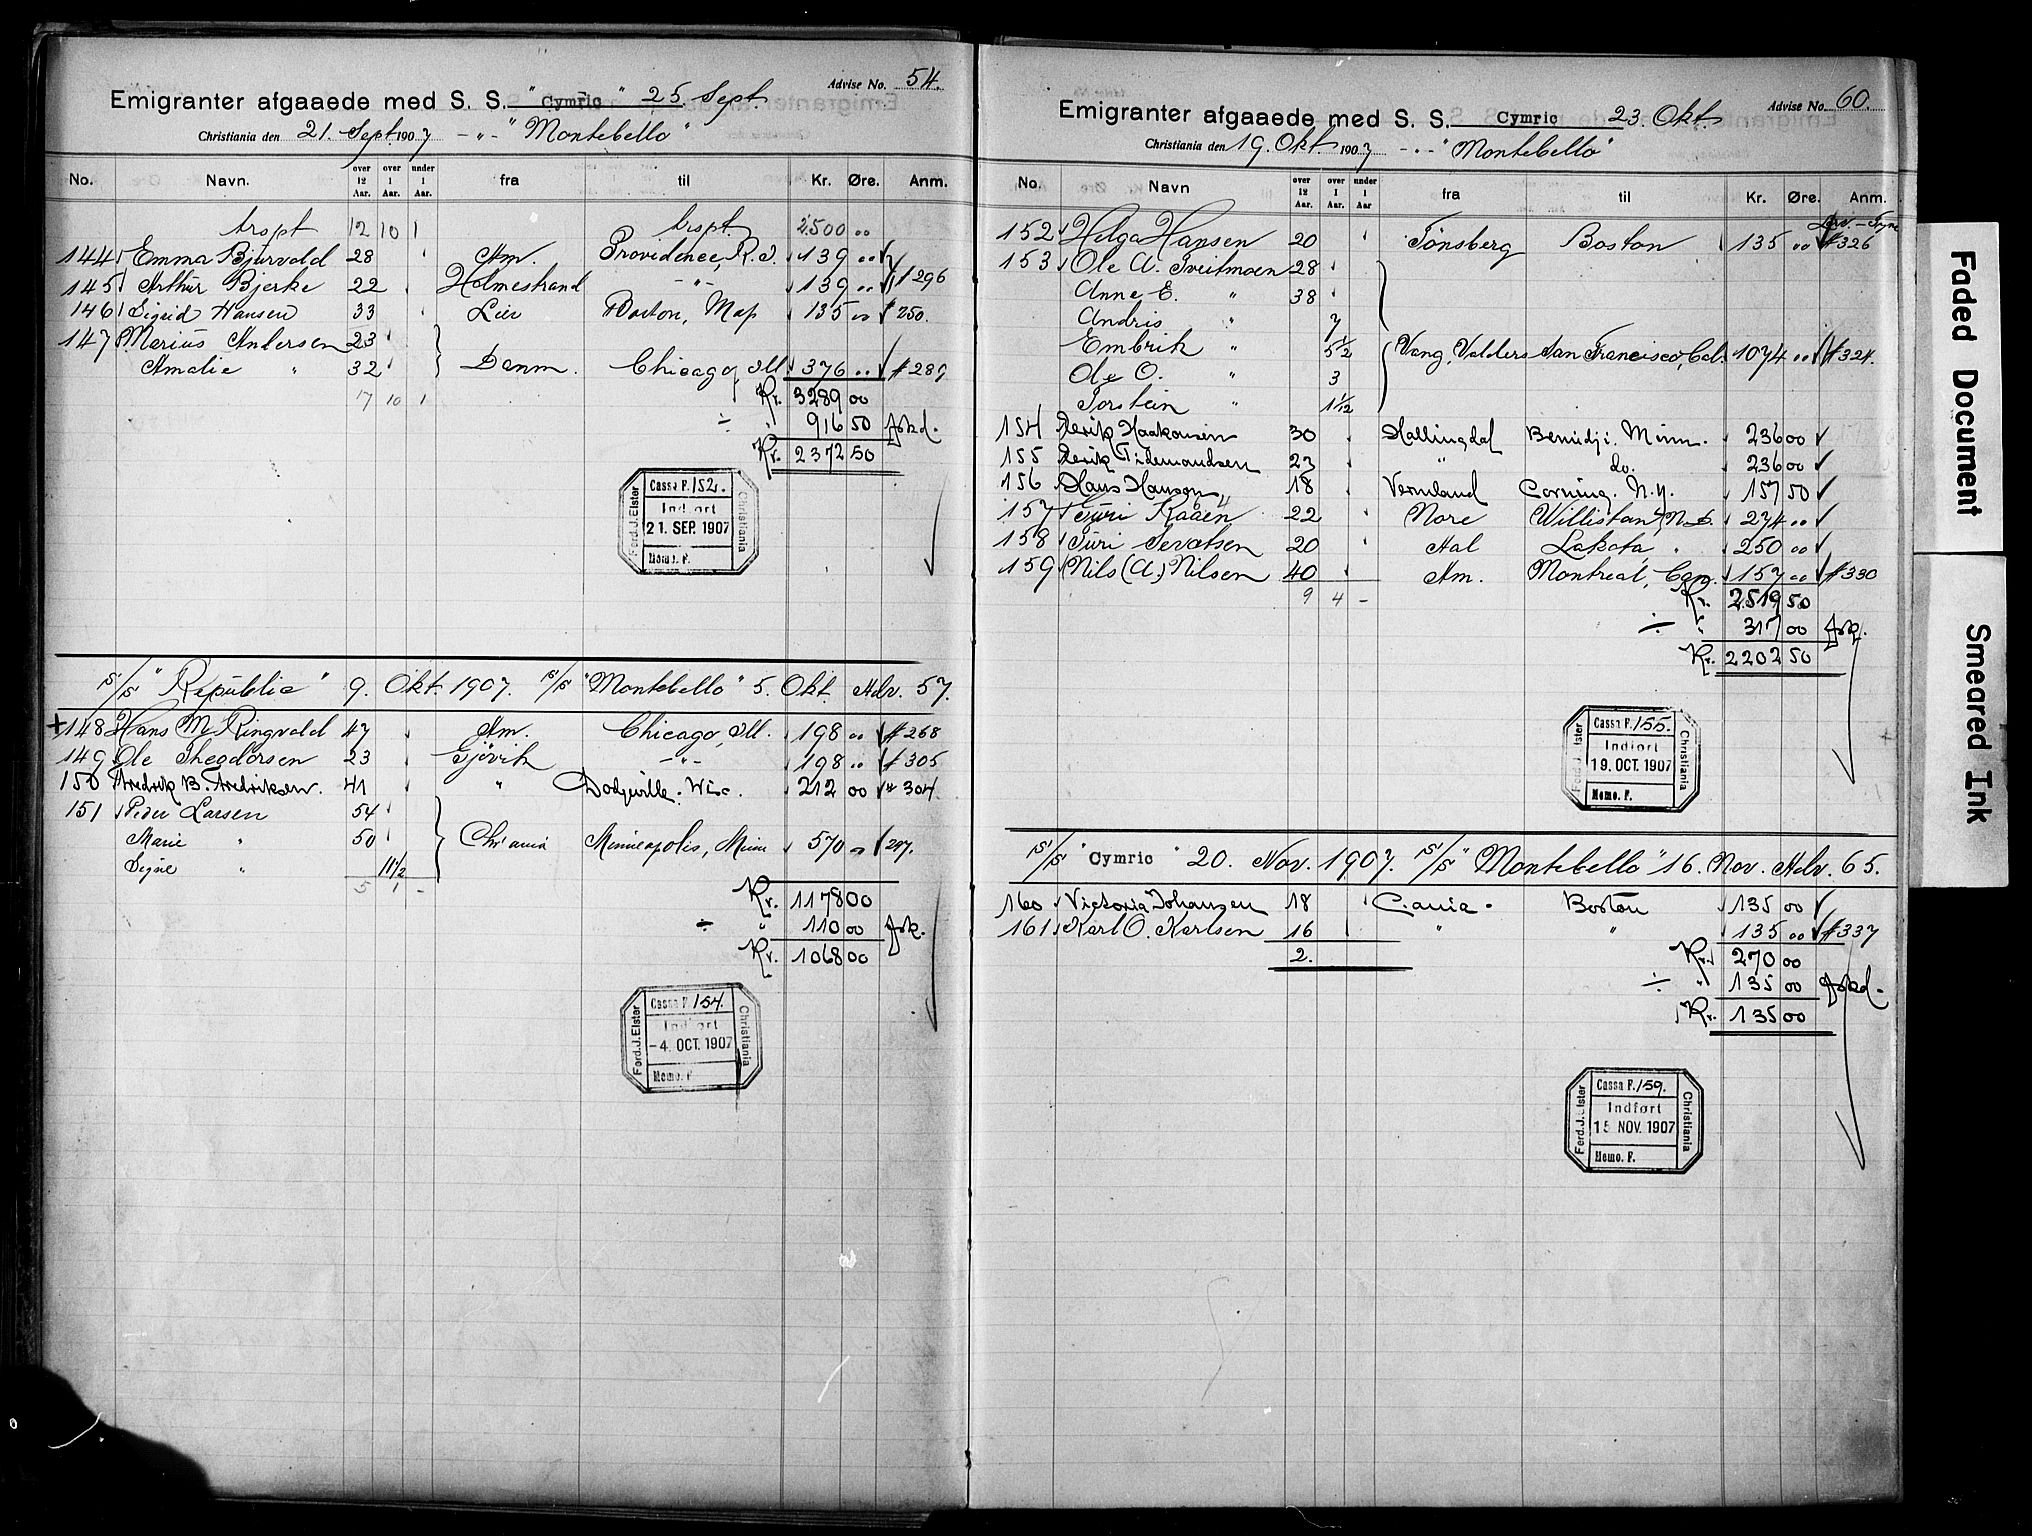 Advise No. 54.
Emigranter afgaaede med S. S. "Cymric" 25 Sept.
Christiania den 21. Sept. 1907 -"- "Montebello"
No. Navn. over 12 Aar. over 1 Aar. under 1 Aar. fra til Kr. Øre. Anm.
trspt 12 10 1 trspt. 2500 "
144 Emma Bjurvald 28 Am. Providence, R.I. 139 "
145 Arthur Bjerke 22 Holmestrand -"- 139 " # 296
146 Sigrid Hansen 33 Lier Boston, Mass 135 " # 250.
147 Marius Andersen 23
Amalie " 32 Danm. Chicago, Ill. 376 " # 289
17 10 1 Kr. 3289 00
÷ " 916 50 fskd.
Kr. 2372 50
Cassa F. 152.
Indført
21. SEP. 1907
Memo. F.
Ferd. J. Elster
Christiania
S/S "Republic" 9. Okt. 1907. S/S "Montebello" 5. Okt. Adv. 57.
+148 Hans M. Ringvold 47 Am. Chicago, Ill. 198 " # 268
149 Ole Theodorsen 23 Gjövik -"- 198 " # 305
150 Fredrik B. Fredriksen. 41 " Dodgeville. Wisc. 212 00 " 304.
151 Peder Larsen 54
Marie " 50 Chr'ania Minneapolis, Minn 570 " 297.
Signe " 11 1/2
5 1 - Kr. 1178 00
÷ " 110 00 fsk.
Kr. 1068 00
Cassa F. 154.
Indført
-4. OCT. 1907
Memo. F
Ferd. J. Elster
Christiania
Advise No. 60.
Emigranter afgaaede med S. S. Cymric 23. Okt.
Christiania den 19. Okt. 1907 -"- "Montebello"
No. Navn over 12 Aar. over 1 Aar. under 1 Aar fra til Kr. Øre. Anm.
152 Helga Hansen 20 Tönsberg Boston 135 " # 326
153 Ole A. Tveitmoen 28
Anne E. " 38
Andris " 7
Embrik " 5 1/2 Vang, Valders San Francisco, Cal. 1074 " # 324.
Ole O. " 3
Torstein " 1 1/12
154 Henrik Haakonsen 30 Hallingdal Bemidji. Minn. 236 00
155 Henrik Tidemandsen 23 " do. 236 00
156 Hans Hanson 18 Vermland Corning. N.Y. 157 50
157 Turi Kaaen 22 Nore Willistan, N.D. 274 "
158 Turi Sevatsen 20 Aal Lakota, " 250 "
159 Nils (A.) Nilsen 40 Am. Montreal, Can. 157 " # 330
9 4 - Kr. 2519 50
÷ " 317 00 fsk.
Kr. 2202 50
Cassa F. 155.
Indført
19. OCT. 1907
Memo. F.
Ferd. J. Elster
Christiania
S/S "Cymric" 20. Nov. 1907. S/S "Montebello" 16. Nov. Adv. 65.
160 Victoria Johansen 18 C.ania. Boston 135 00
161 Karl O. Karlsen 16 " " 135 " # 337
2. Kr. 270 00
÷ " 135 00 fskd.
Kr. 135 00
Cassa F. 159.
Indført
15 NOV. 1907
Memo. F.
Ferd. J. Elster
Christiania
Faded Document
Smeared Ink